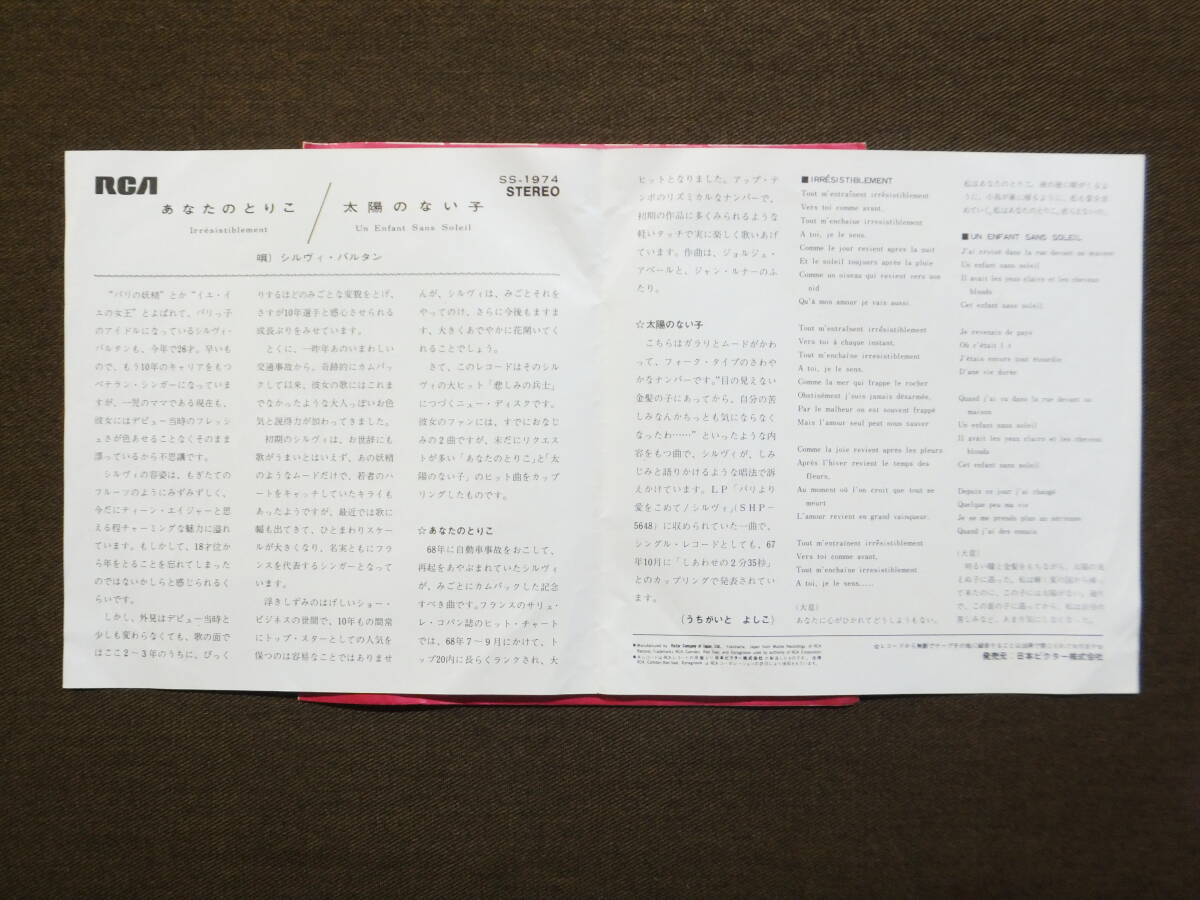 RCA
SS-1974
STEREO
あなたのとりこ／太陽のない子
Irrésistiblement
Un Enfant Sans Soleil
唄）シルヴィ・バルタン
“パリの妖精”とか“イエ・イ
エの女王”とよばれて、パリっ子
のアイドルになっているシルヴィ・
バルタンも、今年で26才。早いも
ので、もう10年のキャリアをもつ
ベテラン・シンガーになっていま
すが、一児のママである現在も、
彼女にはデビュー当時のフレッシ
ュさが色あせることなくそのまま
漂っているから不思議です。
シルヴィの容姿は、もぎたての
フルーツのようにみずみずしく、
今だにティーン・エイジャーと思
える程チャーミングな魅力に溢れ
ています。もしかして、18才位か
ら年をとることを忘れてしまった
のではないかしらと感じられるく
らいです。
しかし、外見はデビュー当時と
少しも変わらなくても、歌の面で
はここ2～3年のうちに、びっく
りするほどのみごとな変貌をとげ、
さすが10年選手と感心させられる
成長ぶりをみせています。
とくに、一昨年あのいまわしい
交通事故から、奇跡的にカムバッ
クして以来、彼女の歌にはこれま
でなかったような大人っぽいお色
気と説得力が加わってきました。
初期のシルヴィは、お世辞にも
歌がうまいとはいえず、あの妖精
のようなムードだけで、若者のハ
ートをキャッチしていたキライも
あったようですが、最近では歌に
幅も出てきて、ひとまわりスケー
ルが大きくなり、名実ともにフラ
ンスを代表するシンガーとなって
います。
浮きしずみのはげしいショー・
ビジネスの世間で、10年もの間常
にトップ・スターとしての人気を
保つのは容易なことではありませ
んが、シルヴィは、みごとそれを
やってのけ、さらに今後もますま
す、大きくあでやかに花開いてく
れることでしょう。
さて、このレコードはそのシル
ヴィの大ヒット「悲しみの兵士」
につづくニュー・ディスクです。
彼女のファンには、すでにおなじ
みの2曲ですが、未だにリクエス
トが多い「あなたのとりこ」と「太
陽のない子」のヒット曲をカップ
リングしたものです。
☆あなたのとりこ
68年に自動車事故をおこして、
再起をあやぶまれていたシルヴィ
が、みごとにカムバックした記念
すべき曲です。フランスのサリュ・
レ・コパン誌のヒット・チャート
では、68年7～9月にかけて、ト
ップ20内に長らくランクされ、大
ヒットとなりました。アップ・テ
ンポのリズミカルなナンバーで、
初期の作品に多くみられるような
軽いタッチで実に楽しく歌いあげ
ています。作曲は、ジョルジュ・
アベールと、ジャン・ルナーのふ
たり。
☆太陽のない子
こちらはガラリとムードがかわ
って、フォーク・タイプのさわや
かなナンバーです。“目の見えない
金髪の子にあってから、自分の苦
しみなんかちっとも気にならなく
なったわ……”といったような内
容をもつ曲で、シルヴィが、しみ
じみと語りかけるような唱法で訴
えかけています。LP「パリより
愛をこめて／シルヴィ」（SHP－
5648）に収められていた一曲で、
シングル・レコードとしても、67
年10月に「しあわせの2分35秒」
とのカップリングで発表されてい
ます。
（うちがいと　よしこ）
■IRRÉSISTIBLEMENT
Tout m'entraînent irrésistiblement
Vers toi comme avant,
Tout m'enchaine irrésistiblement
A toi, je le sens.
Comme le jour revient après la nuit
Et le soleil toujours après la pluie
Comme un oiseau qui revient vers son
nid
Qu'à mon amour je vais aussi.
Tout m'entraînent irrésistiblement
Vers toi à chaque instant,
Tout m'enchaine irrésistiblement
A toi, je le sens.
Comme la mer qui frappe le rocher
Obstisément j'suis janais désarmée,
Par le malheur on est souvent frappé
Mais l'amour seul peut nous sauver
Comme la joie revient apres les pleurs
Après l'hiver revient le temps des
fleurs,
Au moment où l'on croit que tout se
meurt
L'amour revient en grand vainqueur.
Tout m'entraînent irrésistiblement
Vers toi comme avant,
Tout m'enchaine irrésistiblement
A toi, je le sens.....
（大意）
あなたに心がひかれてどうしようもない。
私はあなたのとりこ。
■UN ENFANT SANS SOLEIL
J'ai croisé dans la rue devant sa maison
Un enfant sans soleil
Il avait les yeux clairs et les cheveux
blonds
Cet enfant sans soleil.
Je revenais de pays
Où c'était
J'étais encore tout étourdie
D'une vie dorée
Quand j'ai vu dans la rue devant sa
maison
Un enfant sans soleil
Il avait les yeux clairs et les cheveux
blonds
Cet enfant sans soleil
Depuis ce jour j'ai changé
Quelque peu ma vie
Je ne me prends plus au sérieuse
Quand j'ai des ennuis
（大意）
発売元：日本ビクター株式会社